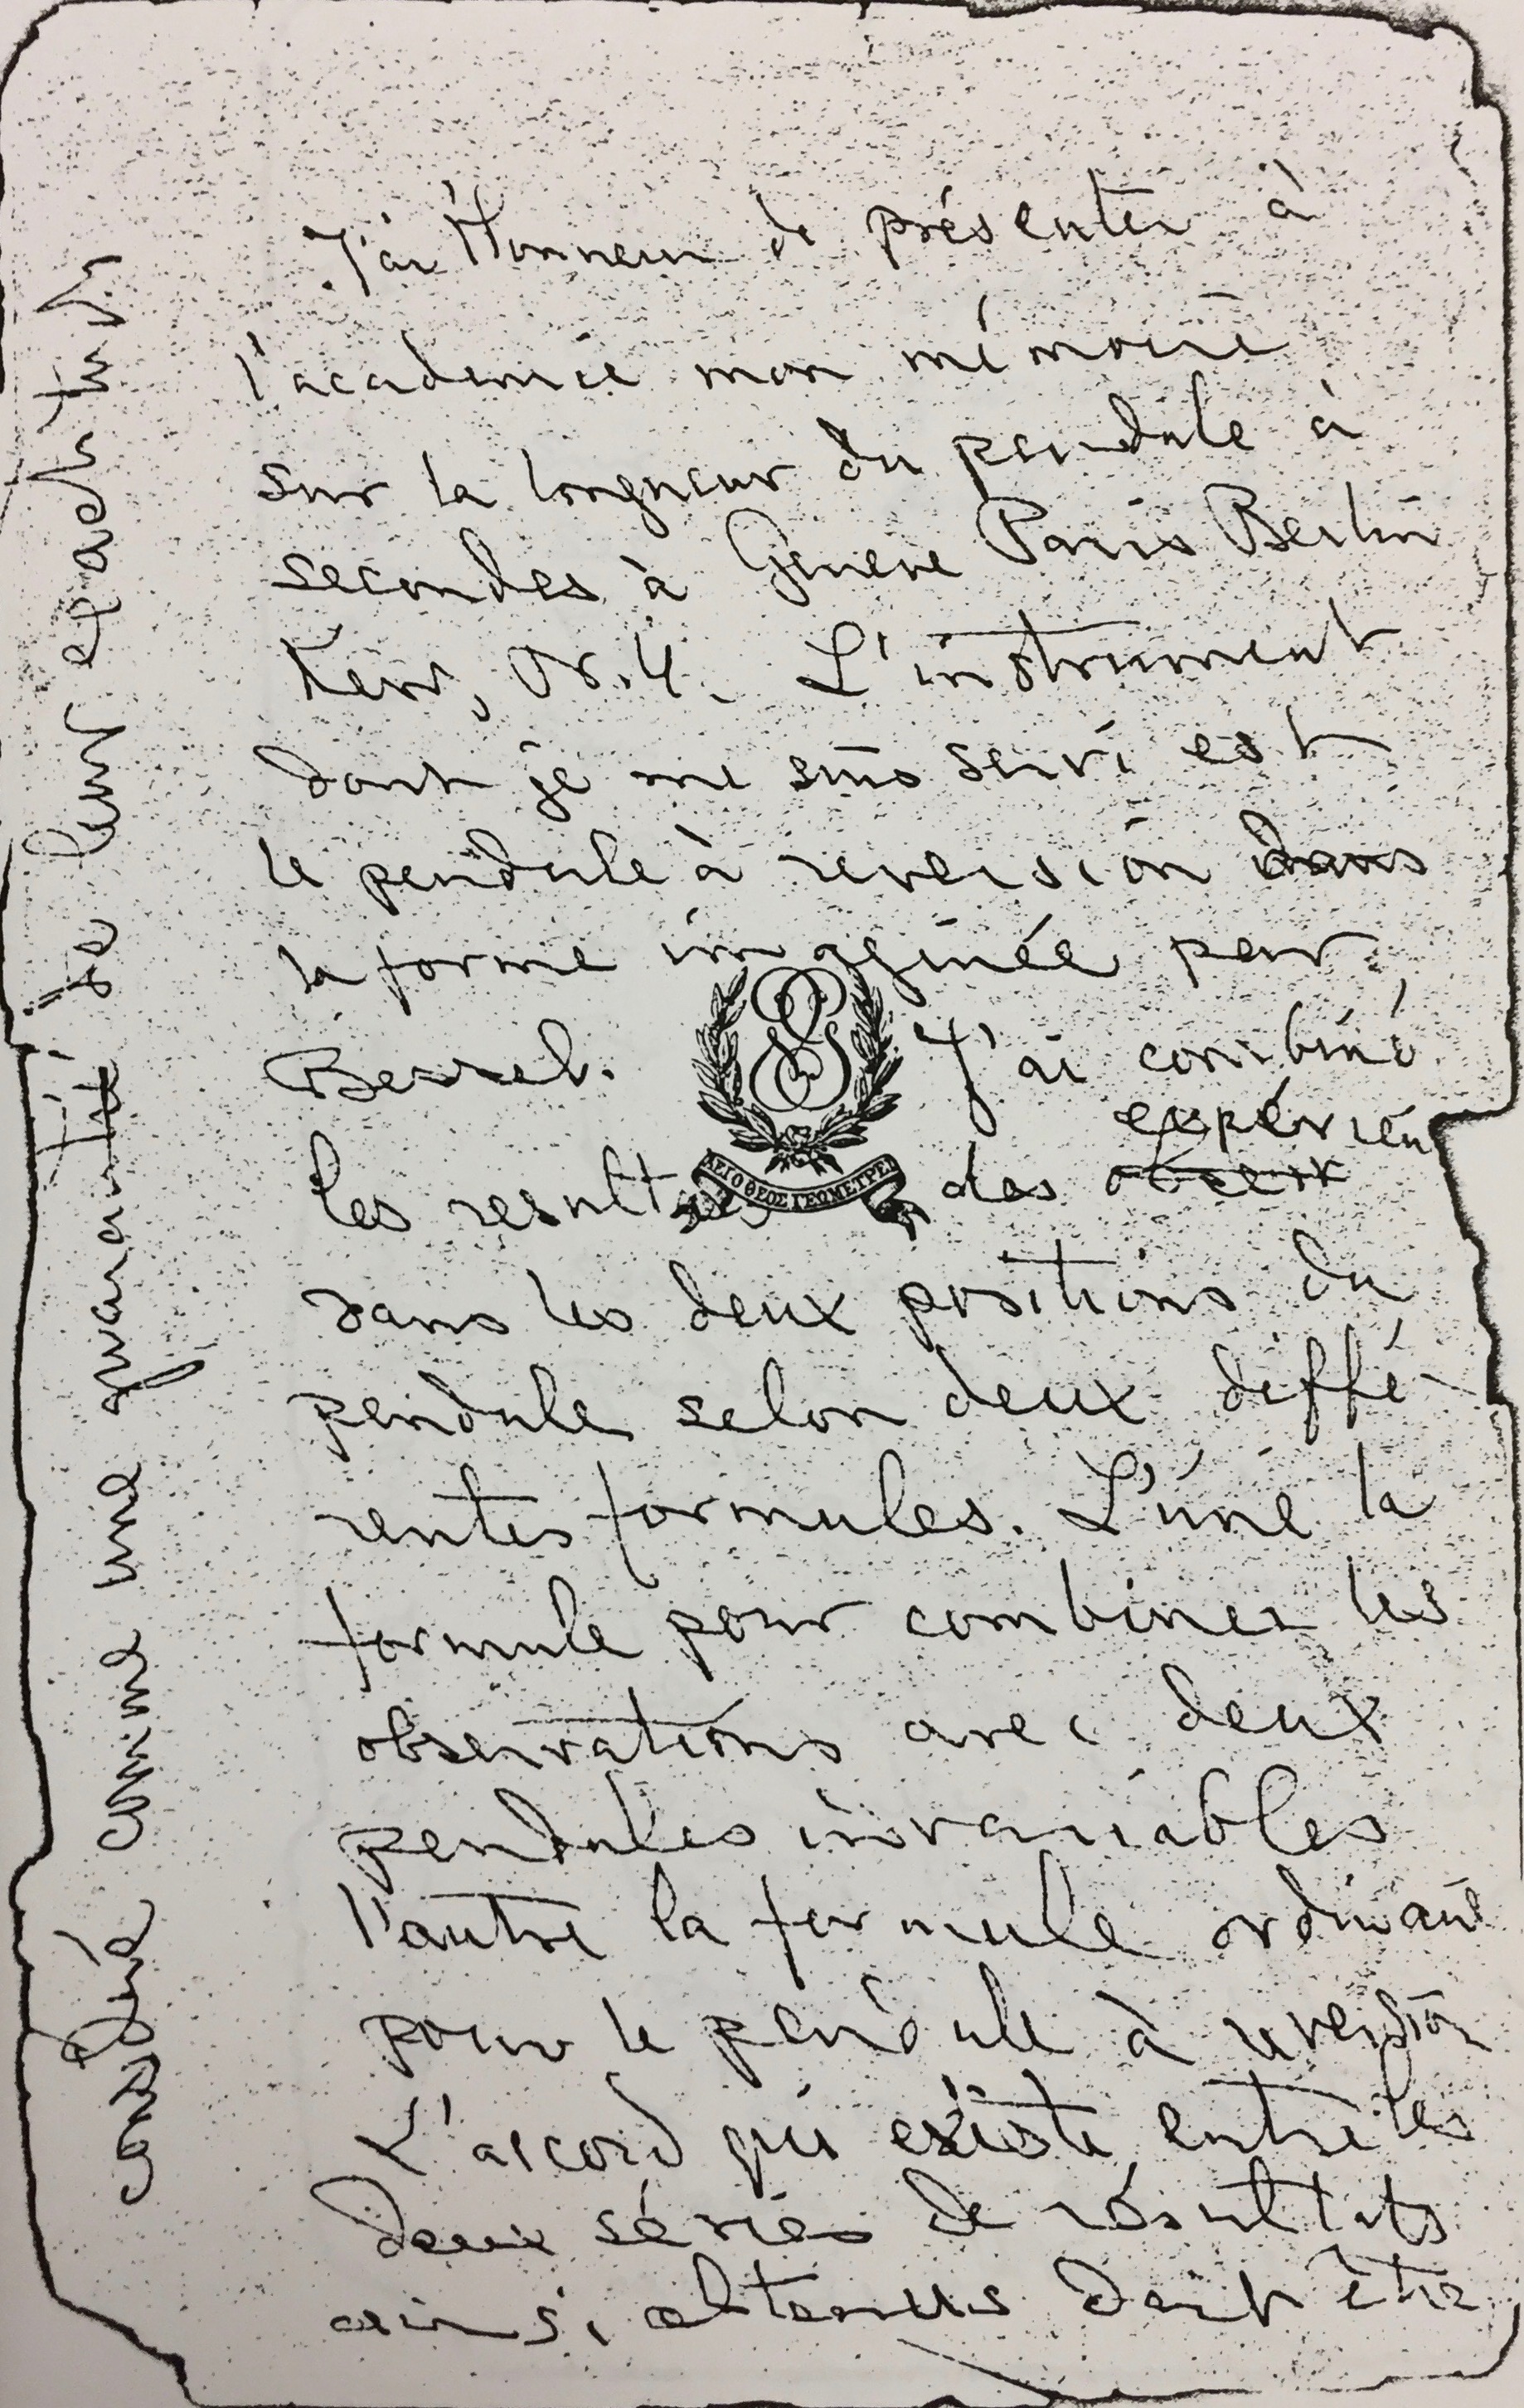 J'ai l'Honneur de présenter à
l'academie mon mémoire
sur la longueur du pendule à
secondes à Geneve Paris Berlin
Kew, N.Y. L'instrument
dont je me suis servi est
le pendule à reversion dans
la forme imaginée par
Bessel. J'ai combiné
ΑΕΙ Ο ΘΕΟΣ ΓΕΩΜΕΤΡΕΙ
expérien
les resultats des obser
dans les deux positions du
pendule selon deux diffé-
rentes formules. L'une la
formule pour combiner les
observations avec deux
pendules invariables
l'autre la formule ordinaire
pour le pendule à reversion
L'accord qui existe entre les
deux séries de résultats
ainsi obtenus doit être
considéré comme une quantité de leur